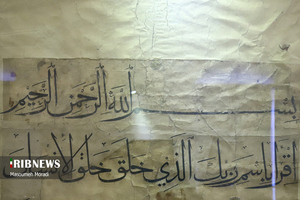 بسم الله الرحمن الرحيم
اقرا باسم ربك الذي خلق خلق الانسان
IRIBNEWS
Masoumeh Moradi